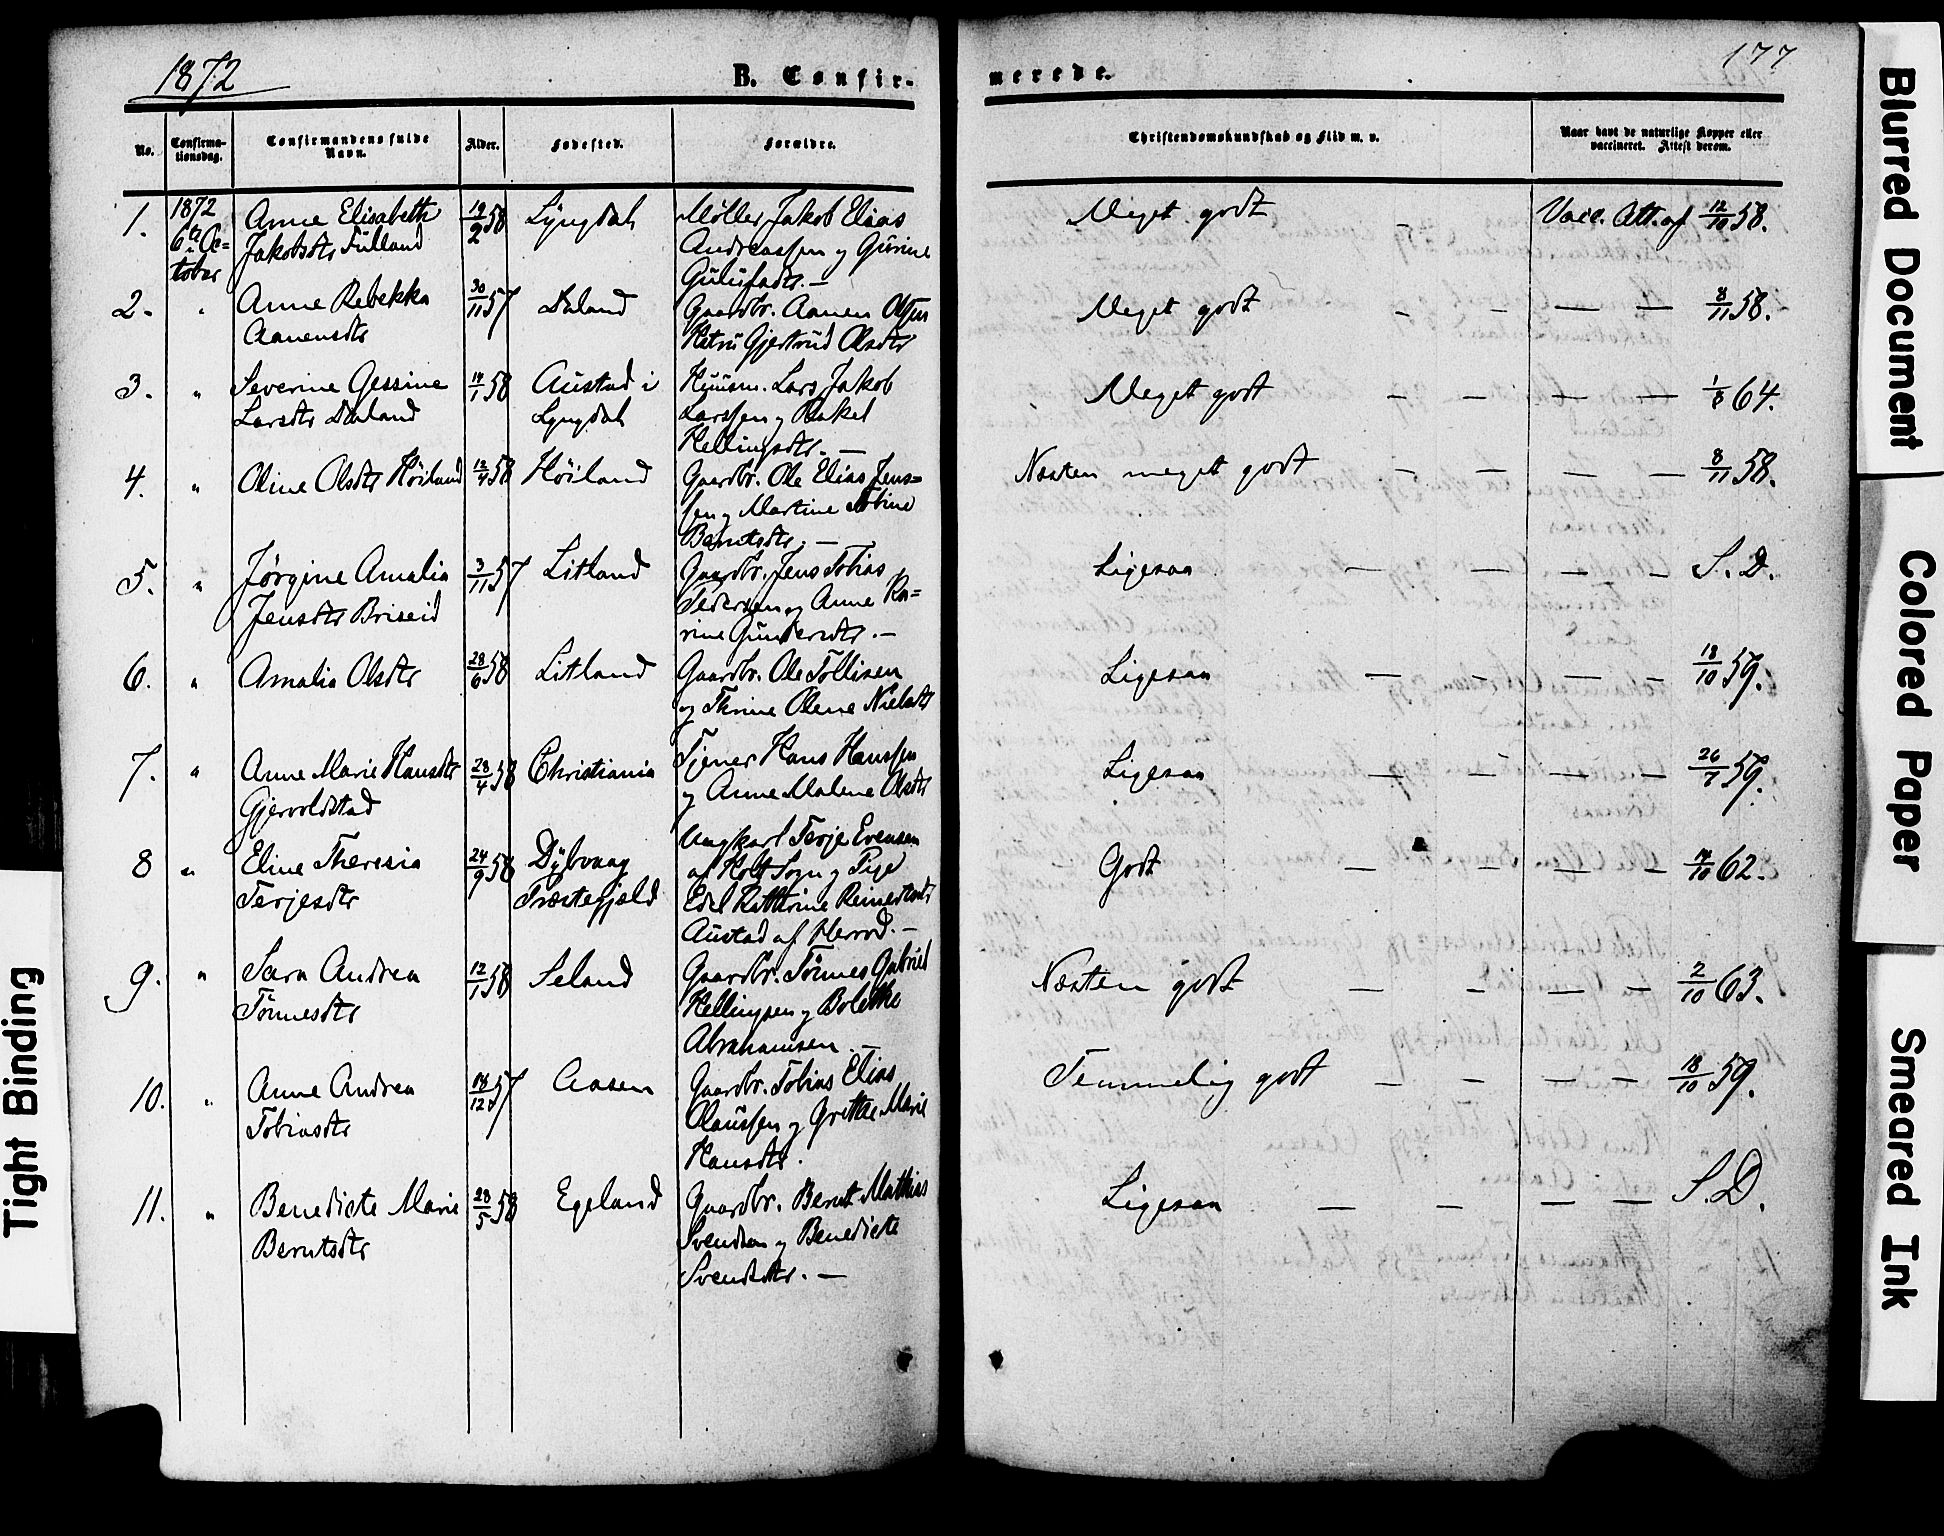 1872
B. Confir-
merede.
177
No.
Confirma-
tionsdag.
Confirmandens fulde
Navn.
Alder.
Fødested.
Forældre.
Christendomskundskab og Flid m. v.
Naar havt de naturlige Kopper eller
vaccineret. Attest derom.
1. 1872 Anne Elisabeth 19/2 58 Lyngdal Møller Jakob Elias Meget godt — Vacc. Att. af 12/10 58.
6te Oc= Jakobsdtr Fülland Andreassen og Gurine
tober Gulufsdtr. —
2. " Anne Rebekka 30/11 57 Daland Gaardbr. Aanen Olsen Meget godt — — — — 8/11 58.
Aanensdtr Petrü Gjertrud Olsdtr
3. " Severine Gessine 14/1 58 Austad i Huusm. Lars Jakob Meget godt — — — — 1/8 64.
Larsdtr Daland Lyngdal Larssen og Rakel
Hellingsdtr. —
4. " Oline Olsdtr Höiland 12/4 58 Höiland Gaardbr. Ole Elias Jens= Næsten meget godt — — — — 8/11 58.
sen og Martine Tobine
Berntsdtr. —
5. " Jørgine Amalia 3/11 57 Litland Gaardbr. Jens Tobias Ligesaa — — — — S. D.
Jensdtr Briseid Pedersen og Anne Ka=
rine Gundersdtr. —
6. " Amalia Olsdtr 28/6 58 Litland Gaardbr. Ole Tollisen Ligesaa — — — — 18/10 59.
og Thrine Olene Nielsdtr
7. " Anne Marie Hansdtr 28/4 58 Christiania Tjener Hans Hanssen Ligesaa — — — — 26/7 59.
Gjervoldstad og Anne Malene Olsdtr
8 " Eline Theresia 24/9 58 Dybvaag Ungkarl Terje Evensen Godt — — — — 14/10 62.
Terjesdtr Træstefjeld af Holt Sogn og Pige
Edel Kathrine Reinertsdtr
Austad af Herred. —
9. " Sara Andrea 12/1 58 Seland Gaardbr. Tönnes Gabriel Næsten godt — — — — 2/10 63.
Tönnesdtr Hellingsen og Bolethe
Abrahamsen —
10. " Anne Andrea 14/12 57 Aasen Gaardbr. Tobias Elias Temmelig godt — — — — 18/10 59.
Tobiasdtr Olaussen og Grethe Marie
Hansdtr.
11. " Benedicte Marie 28/5 58 Egeland Gaardbr. Bernt Mathias Ligesaa — — — — S. D.
Berntsdtr Svendsen og Benedicte
Svendsdtr. —
Tight Binding
Blurred Document
Colored Paper
Smeared Ink